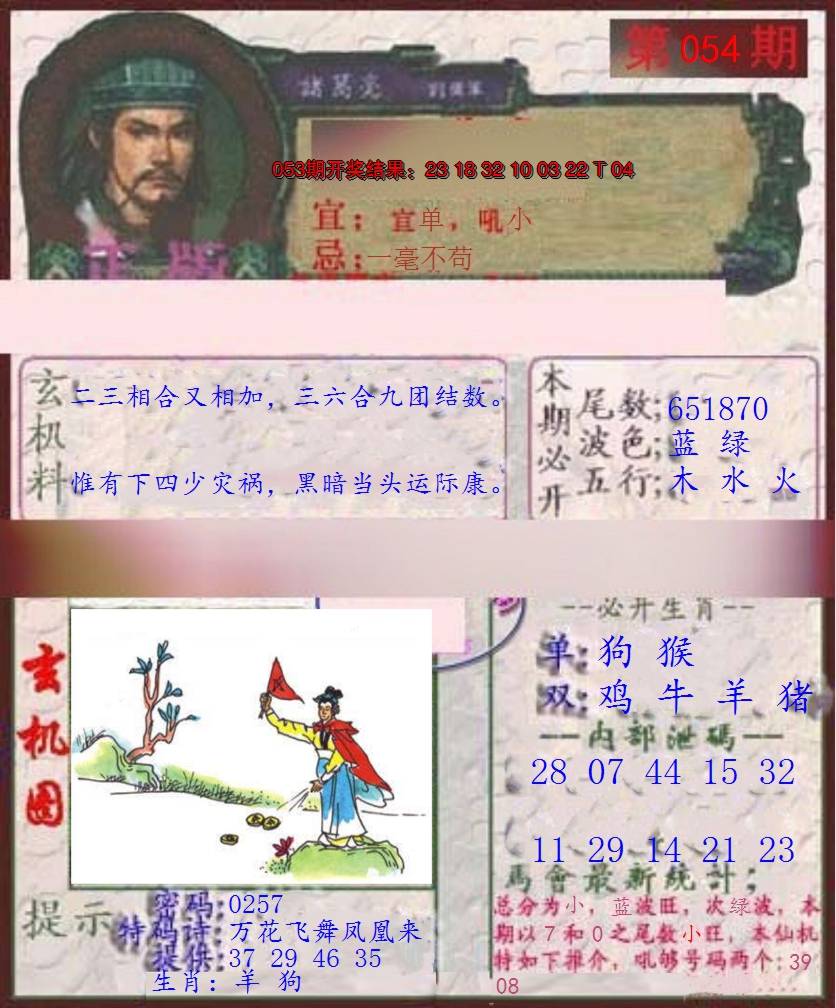 第 054 期
諸葛亮
053期开奖结果：23 18 32 10 03 22 T 04
宜：宜单，吼小
忌：一毫不苟
正版
玄机料
二三相合又相加，三六合九团结数。
惟有下四少灾祸，黑暗当头运际康。
本期必开
尾数；651870
波色；蓝 绿
五行；木 水 火
玄机图
--必开生肖--
单：狗 猴
双：鸡 牛 羊 猪
--内部泄碼--
28 07 44 15 32
11 29 14 21 23
馬會最新統計；
总分为小，蓝波旺，次绿波，本
期以7和0之尾数小旺，本仙机
特如下推介，吼够号码两个：39
08
提示
密码：0257
特码诗：万花飞舞凤凰来
提供：37 29 46 35
生肖：羊 狗